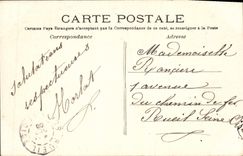 CARTE POSTALE
Tous les Pays Étrangers n'acceptent pas la Correspondance de ce côté, se renseigner à la Poste
Correspondance
Adresse
Salutations
respectueuses
Morlot
Mademoiselle
1 avenue
du chemin de fer
Rueil Seine